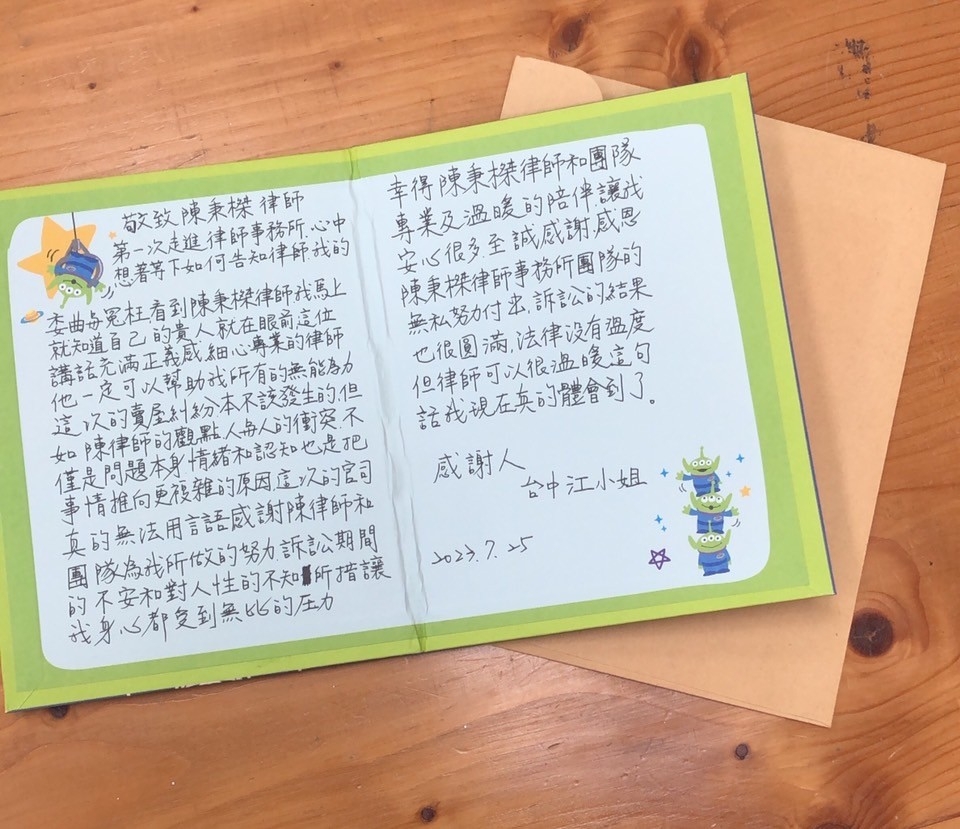 敬致陳秉榤律師
第一次走進律師事務所，心中
想著等下如何告知律師，我的
委曲与冤枉，看到陳秉榤律師我馬上
就知道自己的貴人就在眼前，這位
講話充滿正義感，細心專業的律師
他一定可以幫助我所有的無能為力
這次的賣屋糾紛本不該發生的，但
如陳律師的觀點，人与人的衝突，不
僅是問題本身情緒和認知也是把
事情推向更複雜的原因這次的官司
真的無法用言語感謝陳律師和
團隊為我所做的努力訴訟期間
的不安和對人性的不知所措讓
我身心都受到無比的壓力
幸得陳秉榤律師和團隊
專業及溫暖的陪伴讓我
安心很多，至誠感謝，感恩
陳秉榤律師事務所團隊的
無私努力付出，訴訟的結果
也很圓滿，法律沒有溫度
但律師可以很溫暖這句
話我現在真的體會到了。
感謝人
台中江小姐
2023.7.25